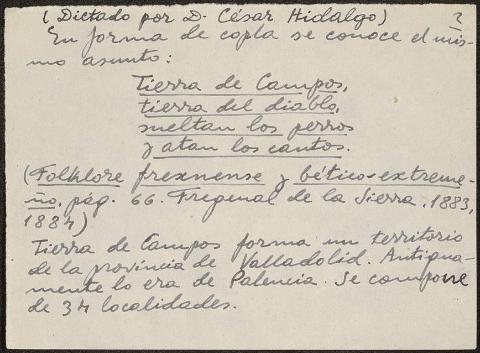 (Dictado por D. César Hidalgo) 2
En forma de copla se conoce el mis-
mo asunto:
Tierra de Campos,
tierra del diablo,
sueltan los perros
y atan los cantos.
(Folklore frexnense y bético-extreme-
ño, pág. 66. Fregenal de la Sierra, 1883,
1884)
Tierra de Campos forma un territorio
de la provincia de Valladolid. Antigua-
mente lo era de Palencia. Se compone
de 34 localidades.